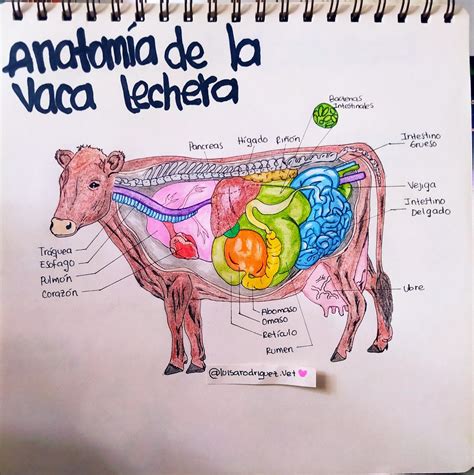 Anatomía de la
vaca lechera
Bacterias
Intestinales
Pancreas
Hígado
Riñon
Intestino
Grueso
Vejiga
Intestino
Delgado
Ubre
Tráquea
Esofago
Pulmón
Corazón
Abomaso
Omaso
Retículo
Rumen
@luisarodriguez.vet